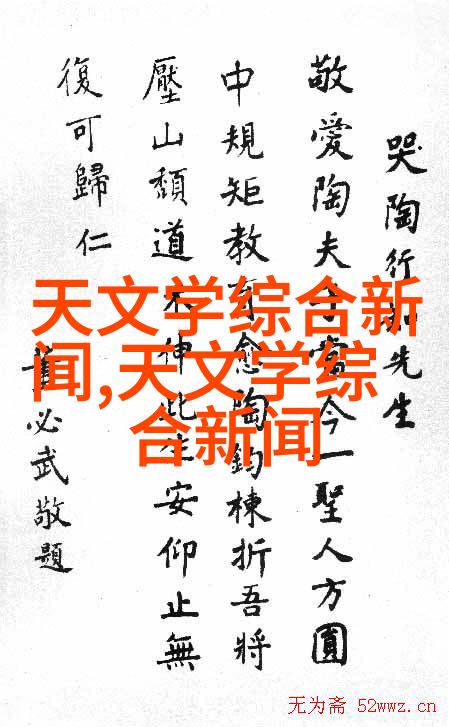 哭陶行知先生
敬愛陶夫子當今一聖人方圓
中規矩教育愈陶鈞棟折吾將
壓山頹道未伸此生安仰止無
復可歸仁
董必武敬題
天文学综合新
闻,天文学综
合新闻
无为斋 52wwz.cn